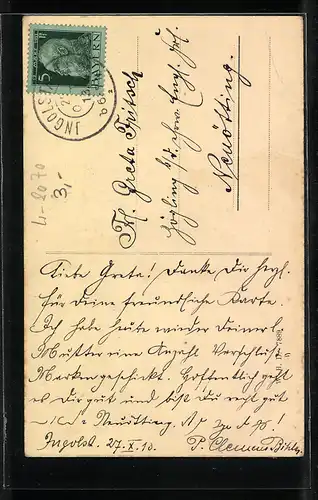 BAYERN
5
INGOLST
Frl. Greta Fritsch
Zögling b/d. Ehrw. Engl. Frl.
Neuötting.
4-2070
3,-
Liebe Greta! Danke Dir herzl.
für Deine freundliche Karte.
Ich habe heute wieder Deiner l.
Mutter eine Anzahl Verschluß-
Marken geschickt. Hoffentlich geht
es Dir gut und bist Du recht gut
Neuötting.
Ingolst. 27.X.13. P. Clemens